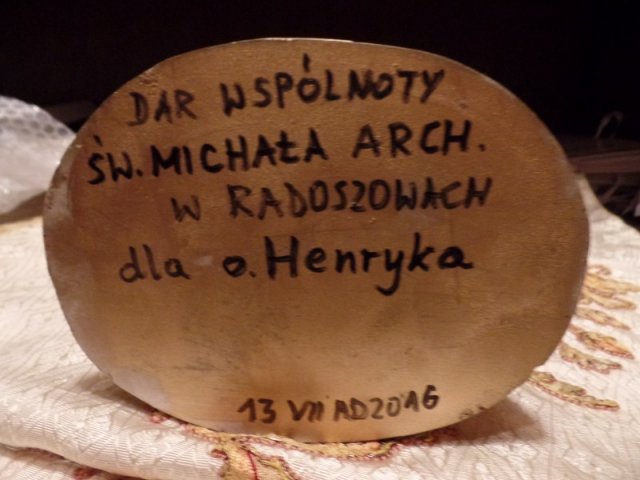 DAR WSPÓLNOTY
ŚW. MICHAŁA ARCH.
W RADOSZOWACH
dla o. Henryka
13 VII AD2016